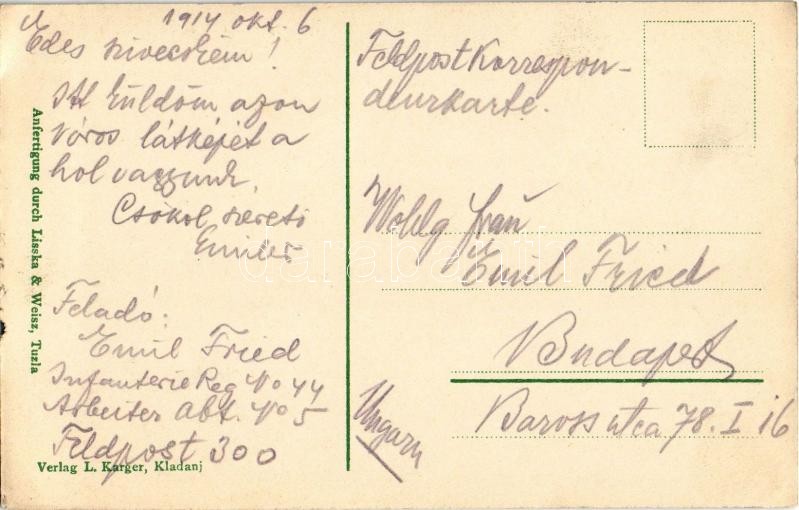 1914 okt. 6
Edes szivecském!
Itt küldöm azon
Város látképét a
hol vagyunk,
Csókol szerető
Emiled
Feladó:
Emil Fried
Infanterie Reg No 44
Arbeiter Abt. No 5
Feldpost 300
Verlag L. Karger, Kladanj
Anfertigung durch Lisska & Weisz, Tuzla
Feldpost Korrespon-
denzkarte.
Wohlg frau
Emil Fried
Budapest
Baross utca 78. I 16
Ungarn
darabanth